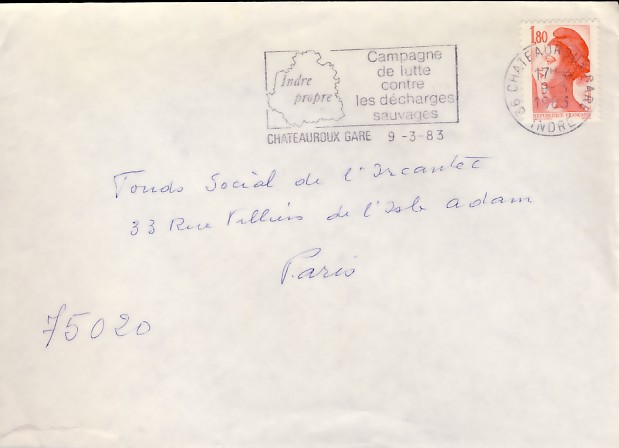 1,80
REPUBLIQUE FRANCAISE
36 CHATEAUROUX GARE
17H
9-3
1983
INDRE
Indre
propre
Campagne
de lutte
contre
les décharges
sauvages
CHATEAUROUX GARE 9-3-83
Fonds Social de l'Ircantec
33 Rue Villiers de l'Isle adam
Paris
75020